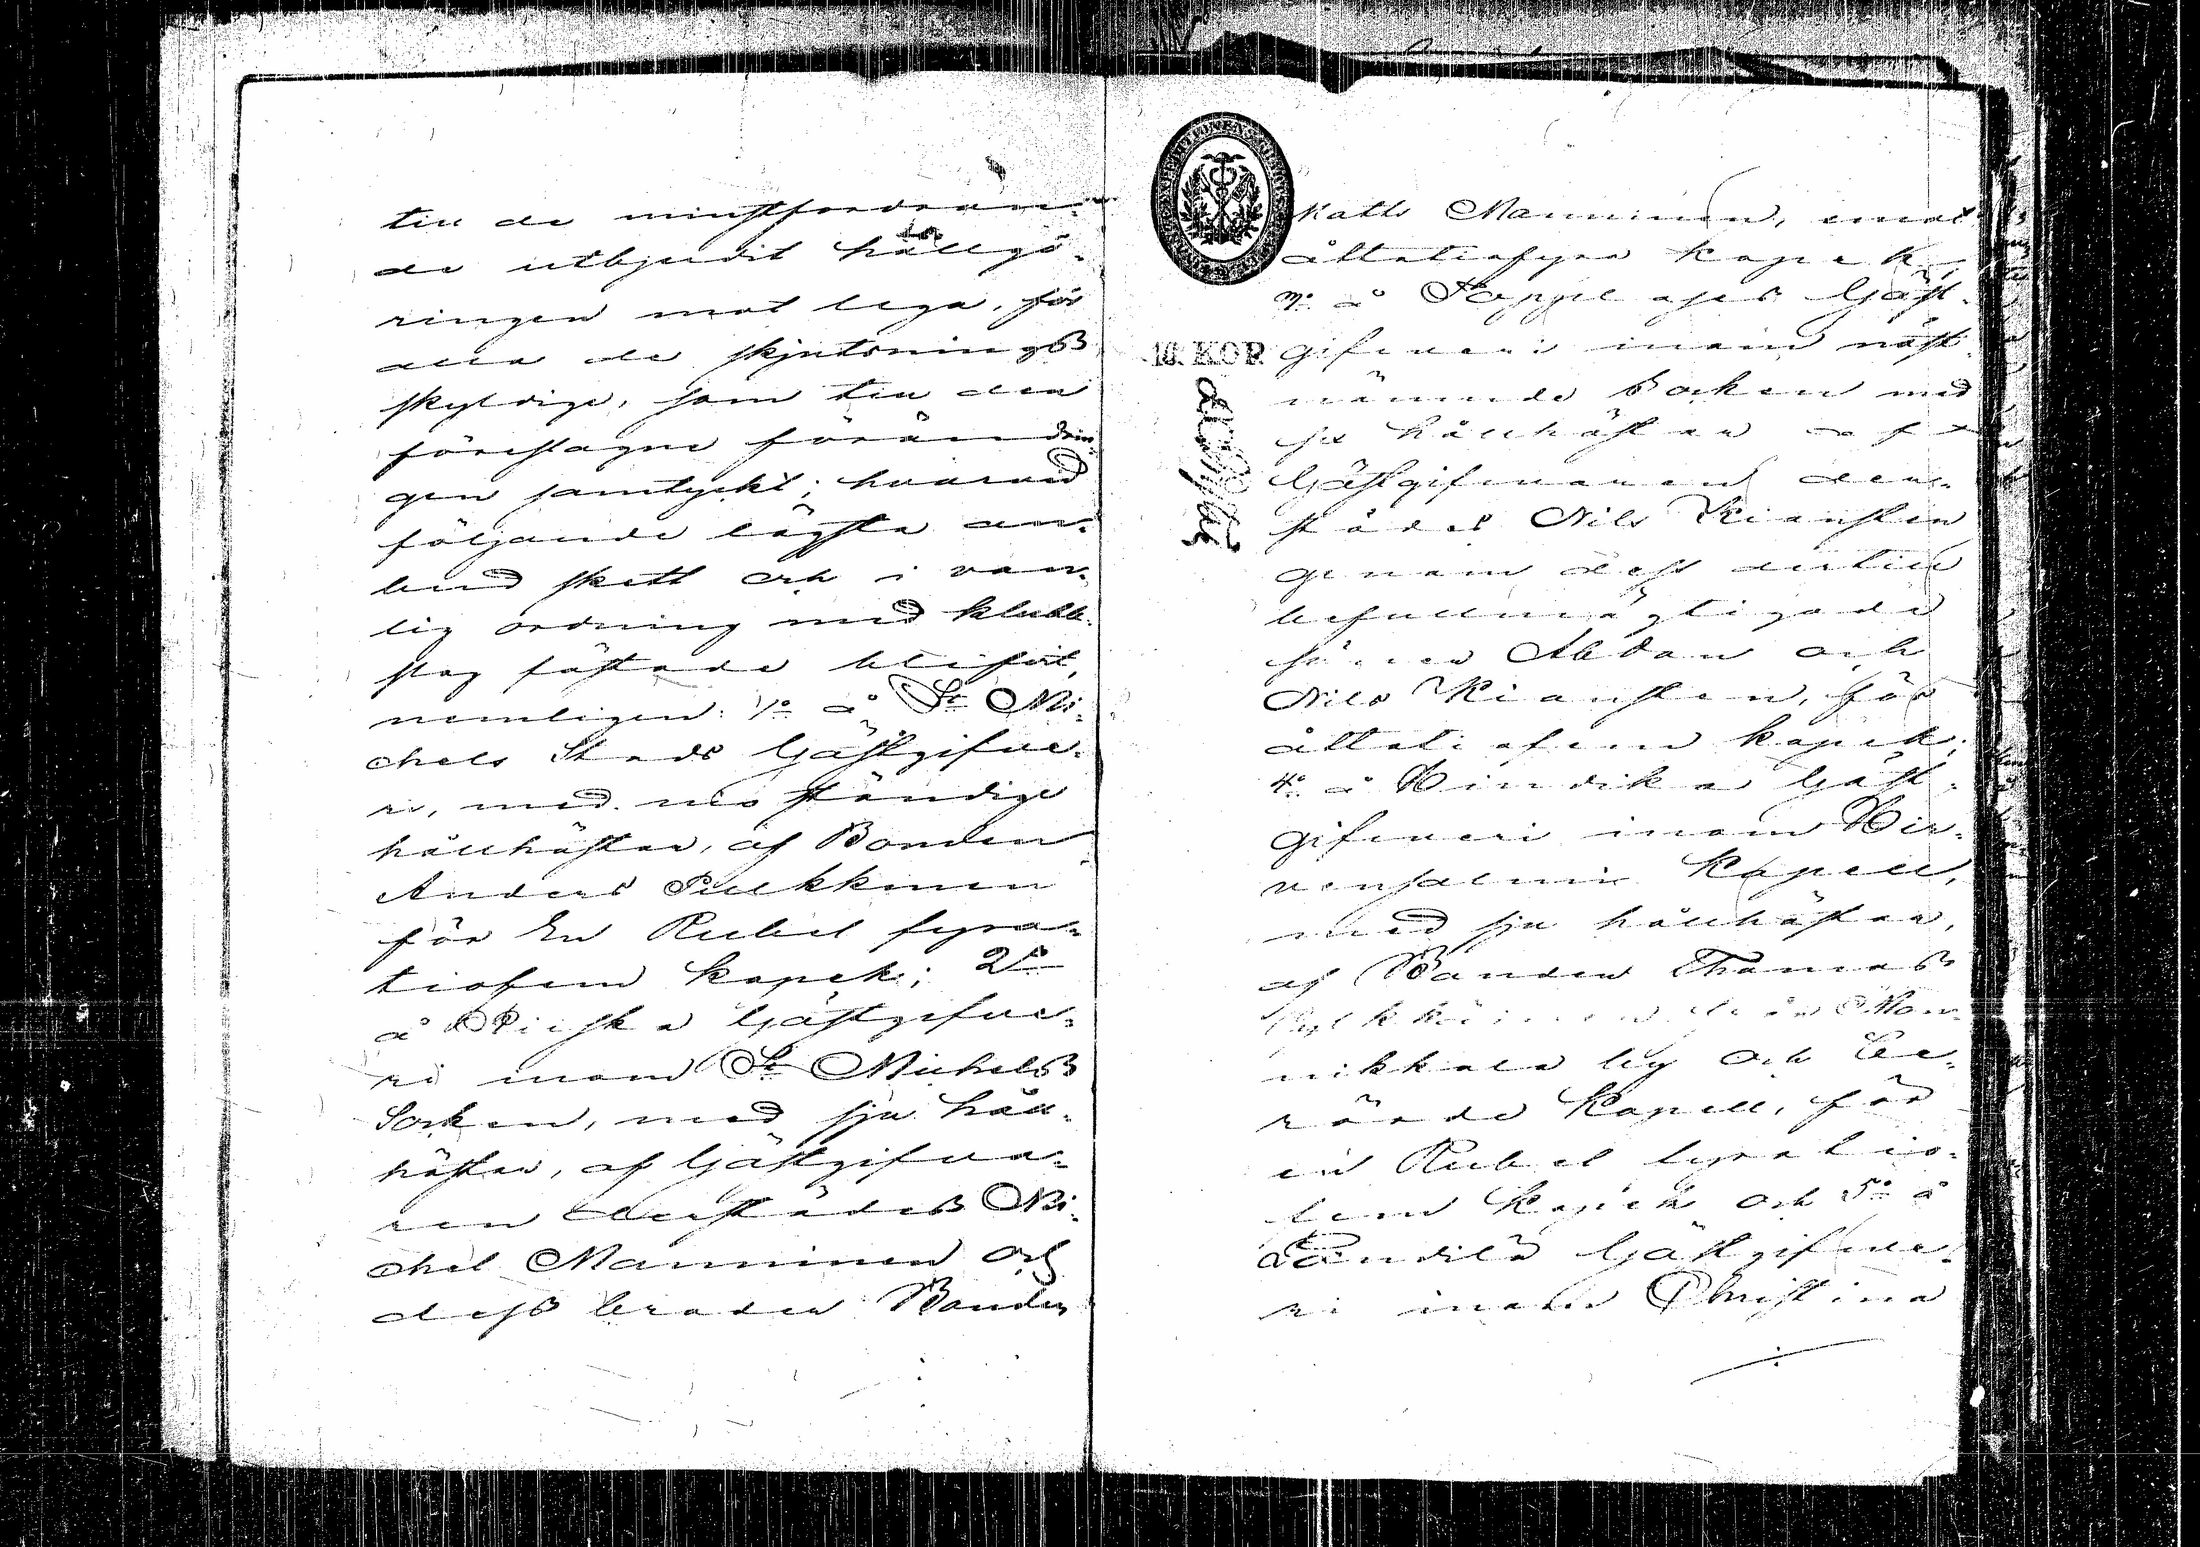 till de minstfordran-
de utbjudit hållgö-
ringen mot lega, för
alla de skjutsnings
skyldige, som till den
föreslagne förändrin-
gen samtyckt; hvarvid
följande lägsta an-
bud skett och i van-
lig ordning med klubb-
slag fästade blifvit,
nemligen: 1o å St Mi-
chels Stads Gästgifve-
ri, med nio ständige
hållhästar, af Bonden
Anders Pulkkinen
för En Rubel fyra-
tiofem kopek; 2o
å Pitska Gästgifve-
ri inom St Michels
Socken, med sju håll-
hästar, af Gästgifva-
ren derstädes Mi-
chel Manninen och
dess broder Bonden
Matts Manninen, emot
åttatiofyra kopek,
3o å Koppelojes Gäst-
gifveri inom näst-
nämnde Socken med
sex hållhästar af
Gästgifvaren der-
städes Nils Kiansten
genom dess dertill
befullmägtigade
söner Abdon och
Nils Kiansten, för
åttatiofem kopek;
4o å Hindika Gäst-
gifveri inom Hir-
vensalmi Kapell,
med sju hållhästar,
af Bonden Thomas
från Man-
nikkala by och
Kapell, för
en Rubel fyratio-
fem kopek och 5o å
Gästgifve-
ri inom Christina
10. KOP.